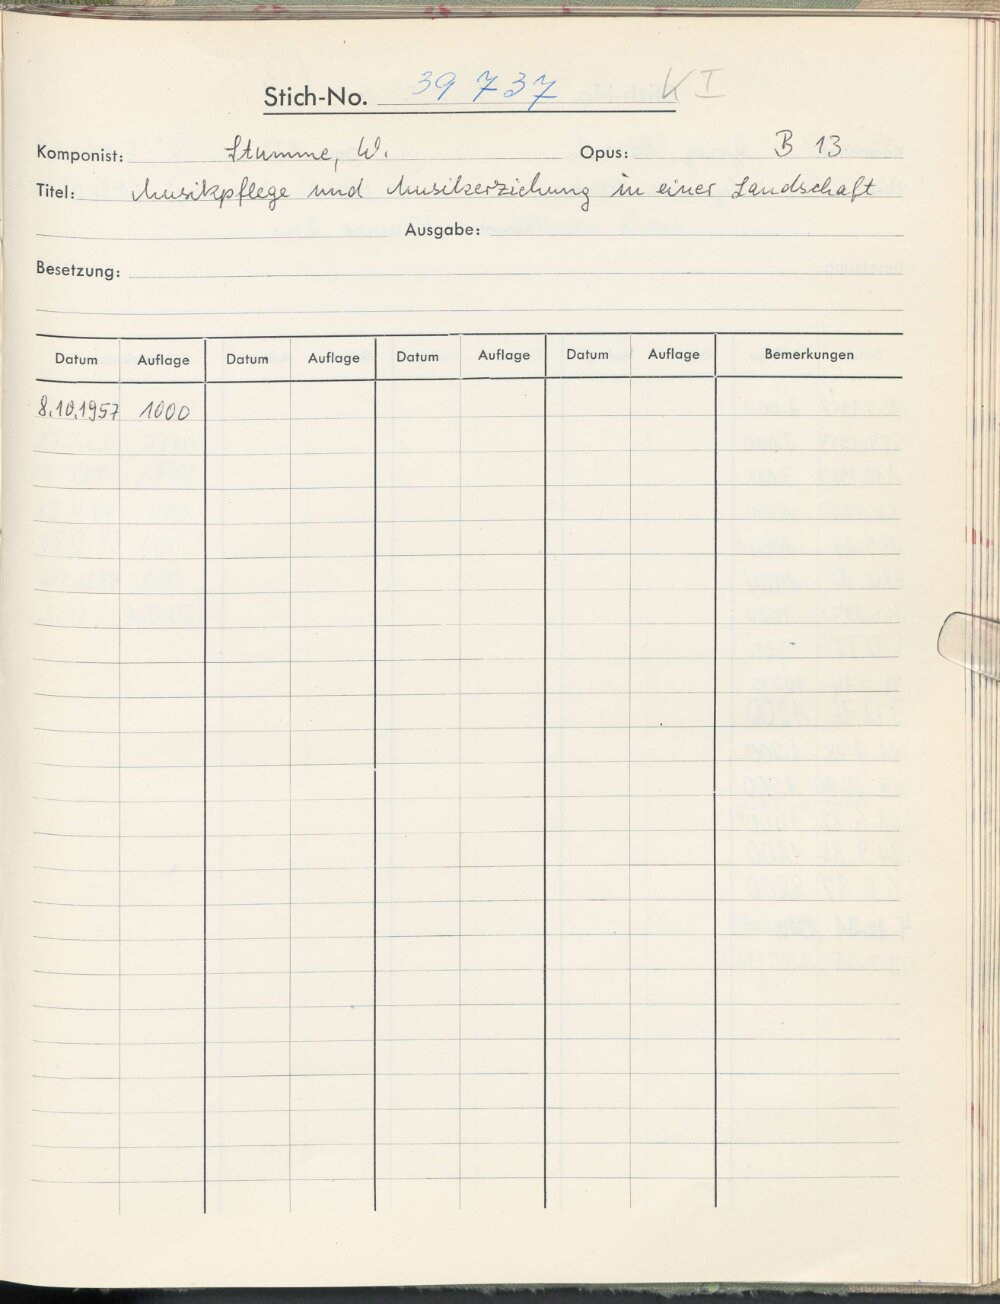 Stich-No. 39 737 K I
Komponist: Stumme, W. Opus: B 13
Titel: Musikpflege und Musikerziehung in einer Landschaft
Ausgabe:
Besetzung:
Datum Auflage Datum Auflage Datum Auflage Datum Auflage Bemerkungen
8.10.1957 1000